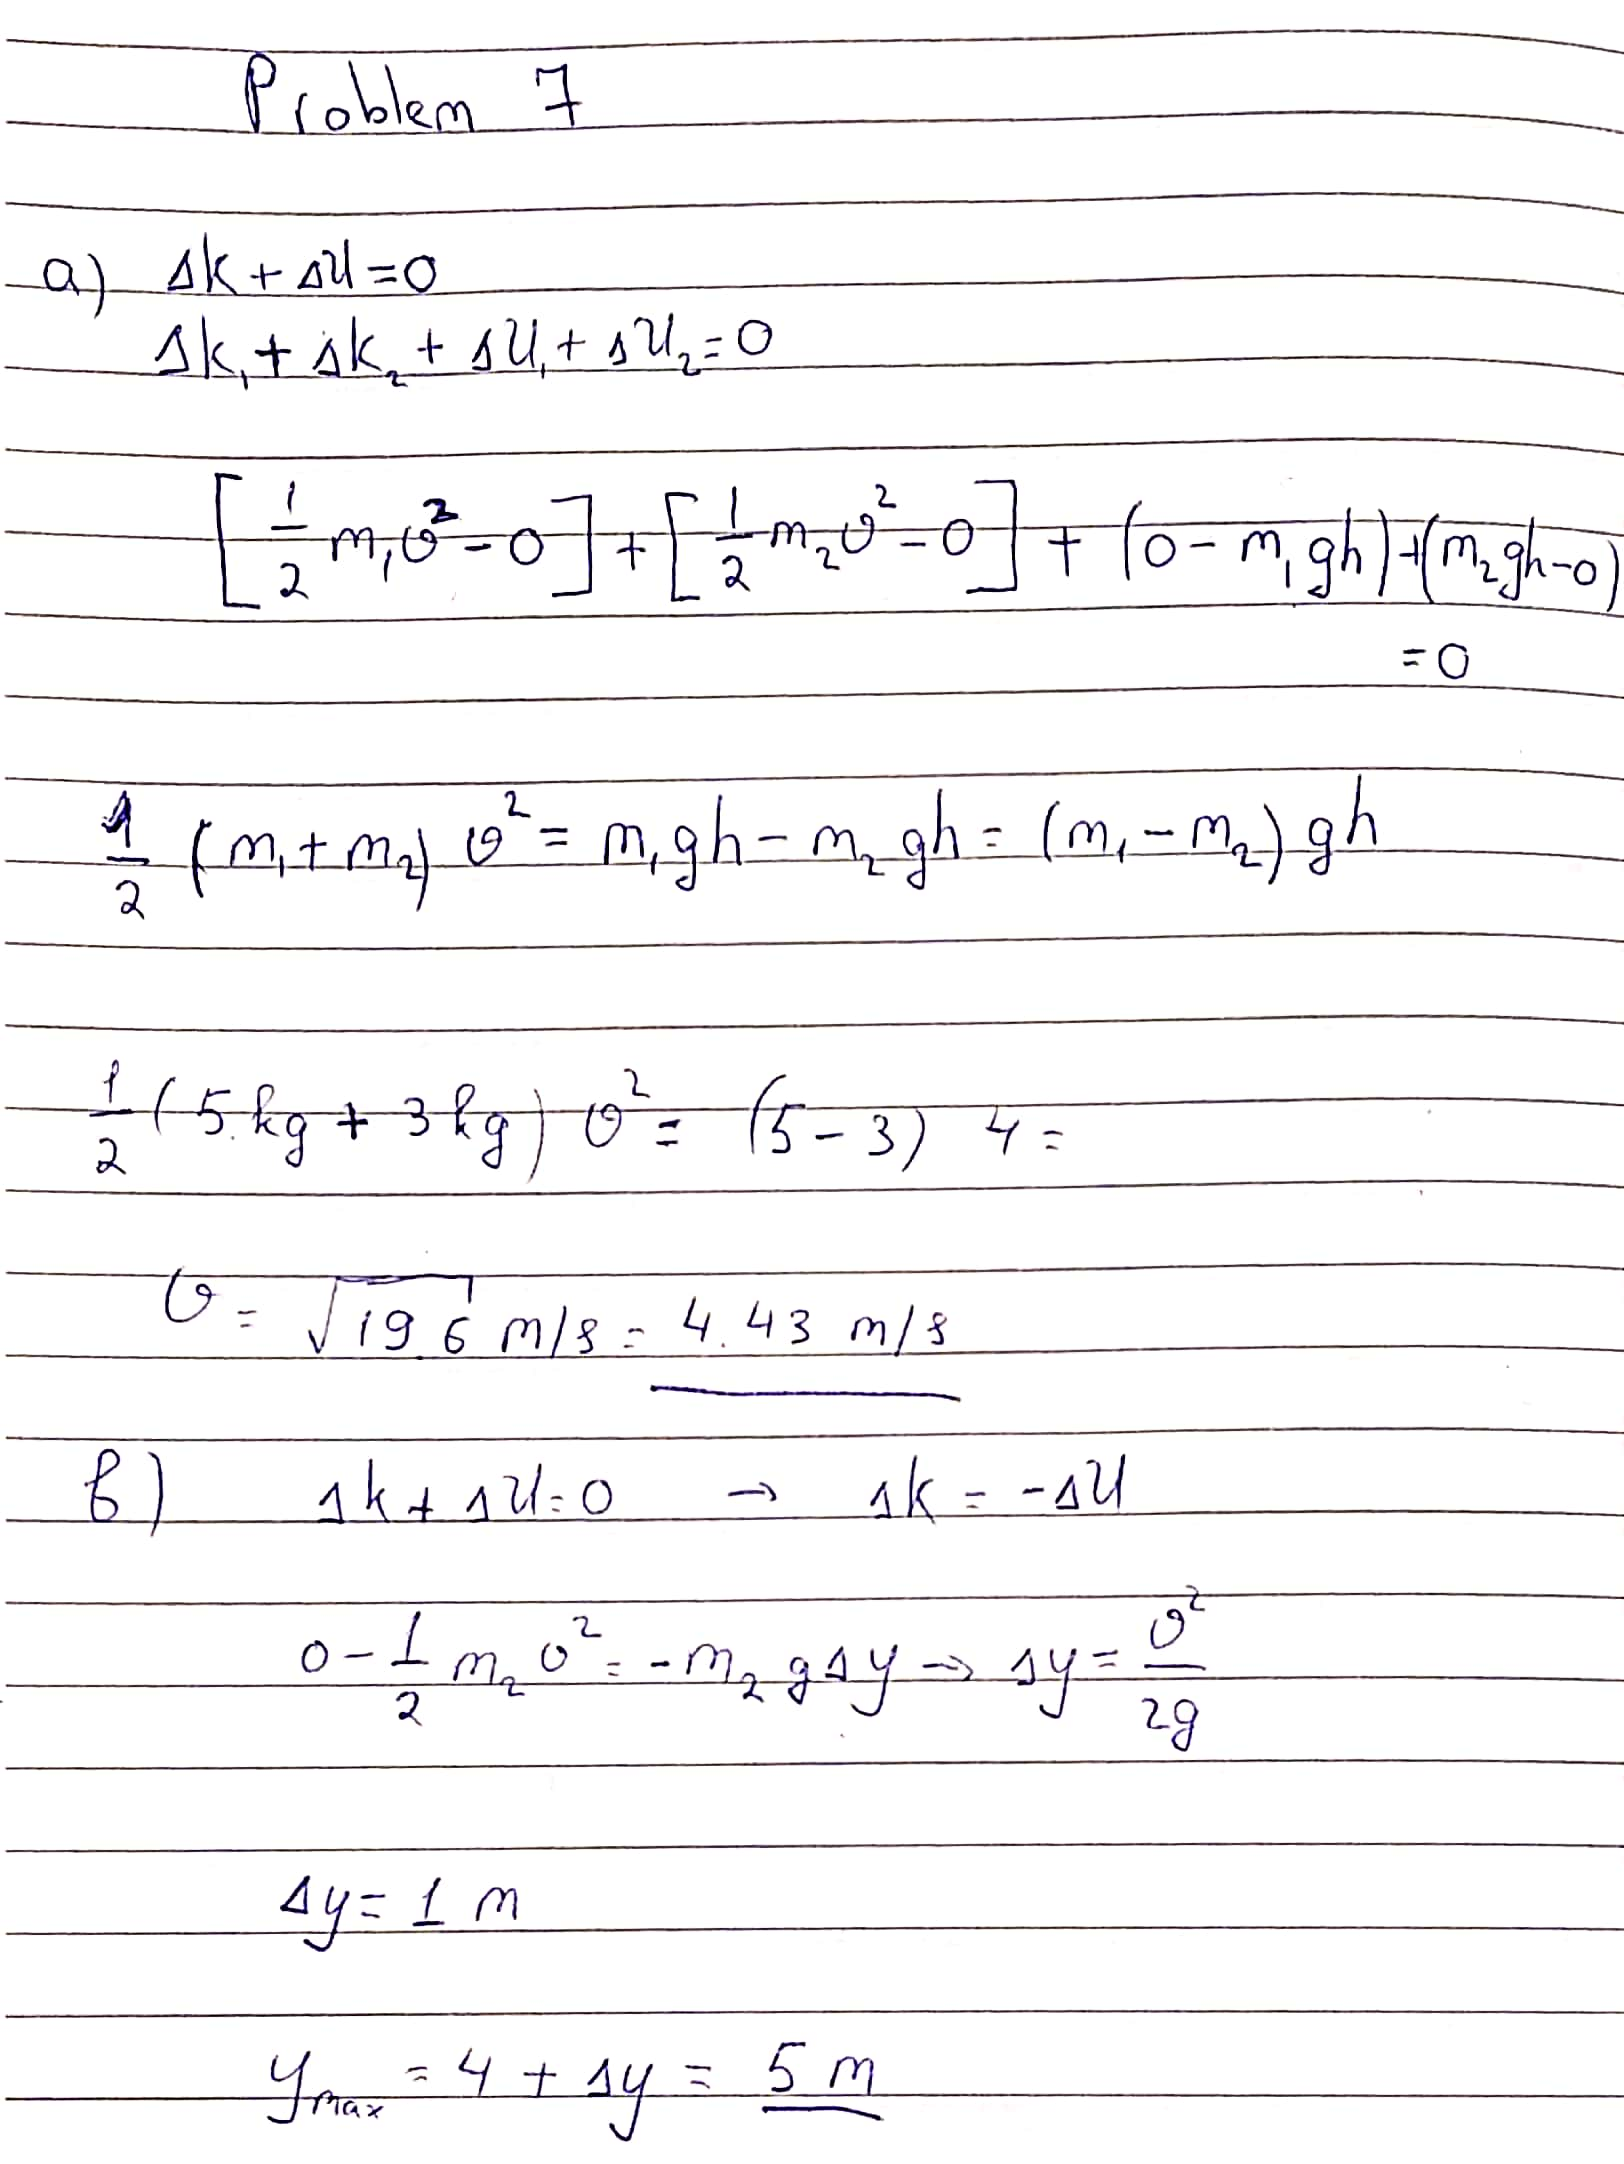 Problem 7
a) Δk + ΔU = 0
Δk₁ + Δk₂ + ΔU₁ + ΔU₂ = 0
[1/2 m₁v² - 0] + [1/2 m₂v² - 0] + (0 - m₁gh) + (m₂gh - 0)
= 0
1/2 (m₁ + m₂) v² = m₁gh - m₂gh = (m₁ - m₂) gh
1/2 (5 kg + 3 kg) v² = (5 - 3) 4 =
v = √19.6 m/s = 4.43 m/s
b) Δk + ΔU = 0 → Δk = -ΔU
0 - 1/2 m₂ v² = - m₂ g Δy → Δy = v²/2g
Δy = 1 m
y_max = 4 + Δy = 5 m